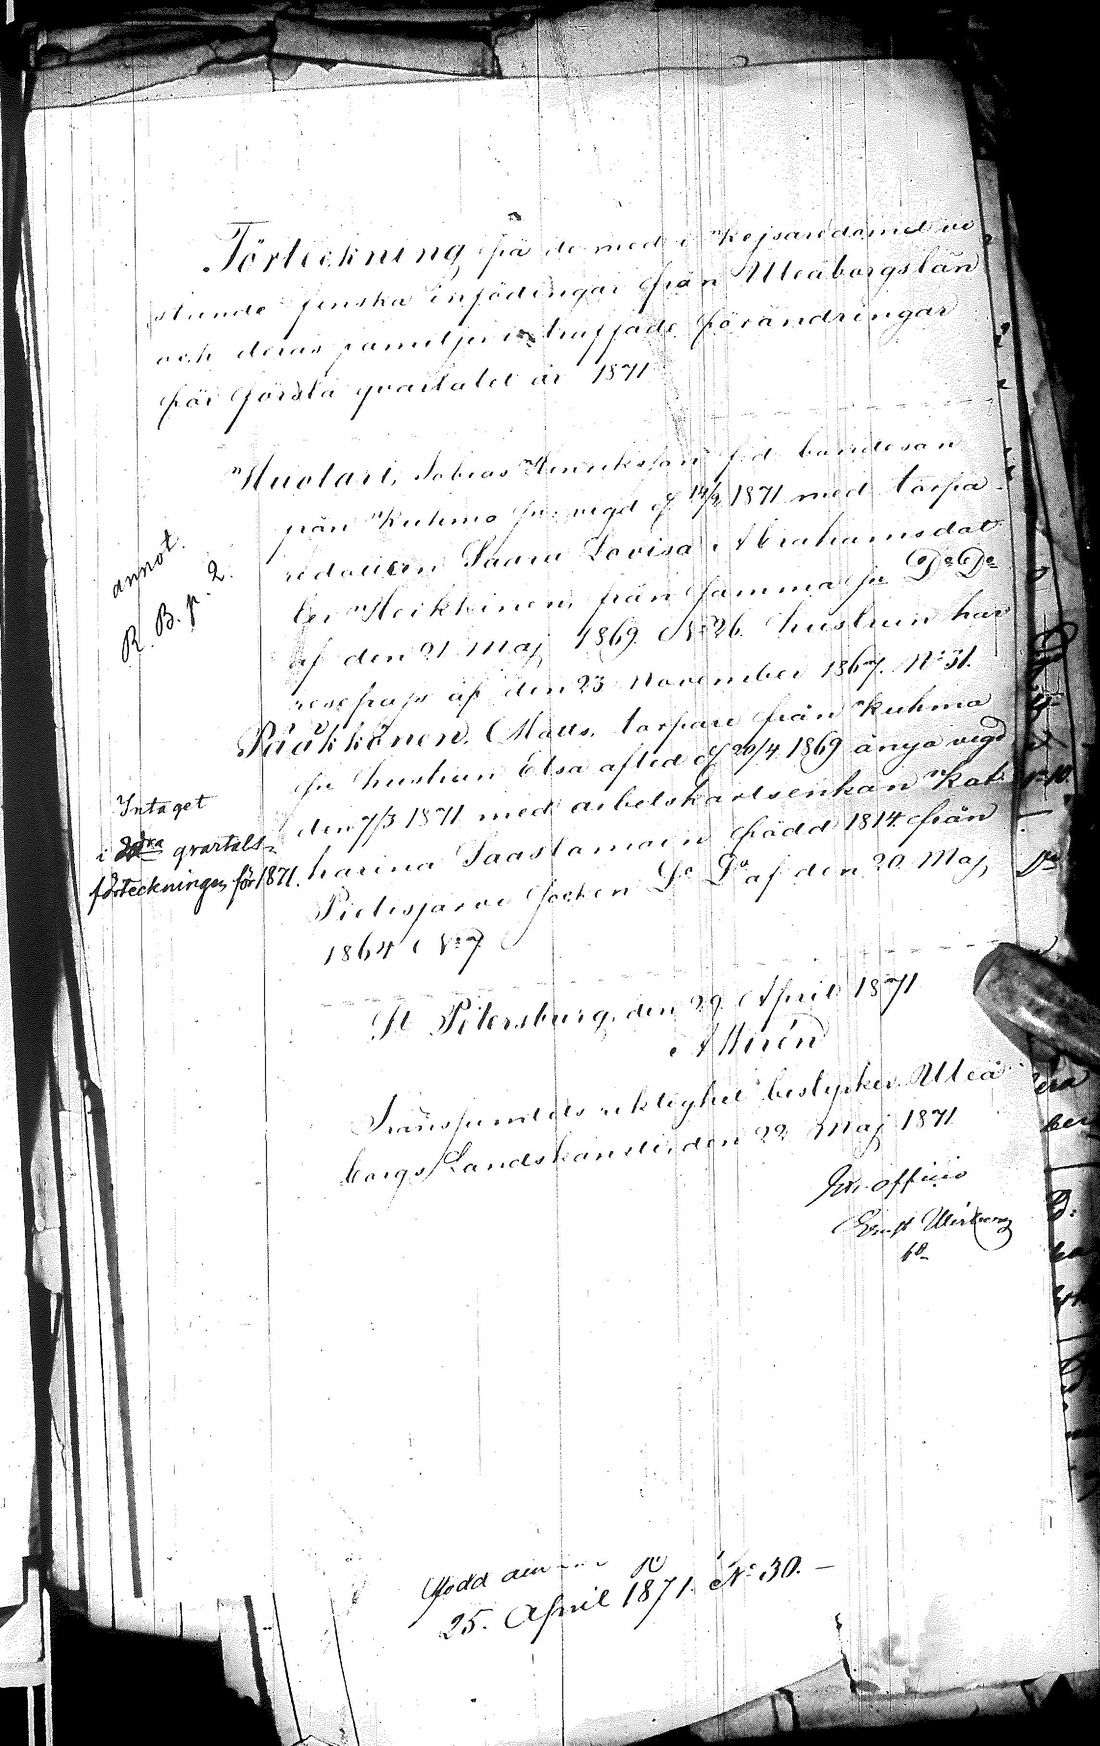 Förteckning på de med i Kejsaredömet vi
stande finska infödingar från Uleåborgs län
och deras familjer träffade förändringar
för första qvartalet år 1871
Huotari, Tobias Henriksson f.d. bondeson
från Kuhmo sn vigd d 14/2 1871 med torpa-
redottren Saara Lovisa Abrahamsdot
ter Heikkinen, från samma sn Do Do
af den 21 Maj 1869 No 26. hustrun har
resepass af den 23 November 1867. No 31.
annot.
R. B. p. 2.
Pääkkönen, Matts, torpare från Kuhmo
sn hustrun Elsa afled d 20/4 1869 ånyo vigd
den 7/3 1871 med arbetskarlsenkan Kat-
harina Saastamoin född 1814 från
Pielisjärvi socken Do Do af den 20 Maj
1864 No 7
Intaget
i 2dra qvartals-
förteckningen för 1871.
St Petersburg, den 29 April 1871
Transsumtets riktighet bestyrker. Uleå
borgs Landskansli, den 22 Maj 1871
Ex officio
Ernst
Född den
25. April 1871. No 30. –